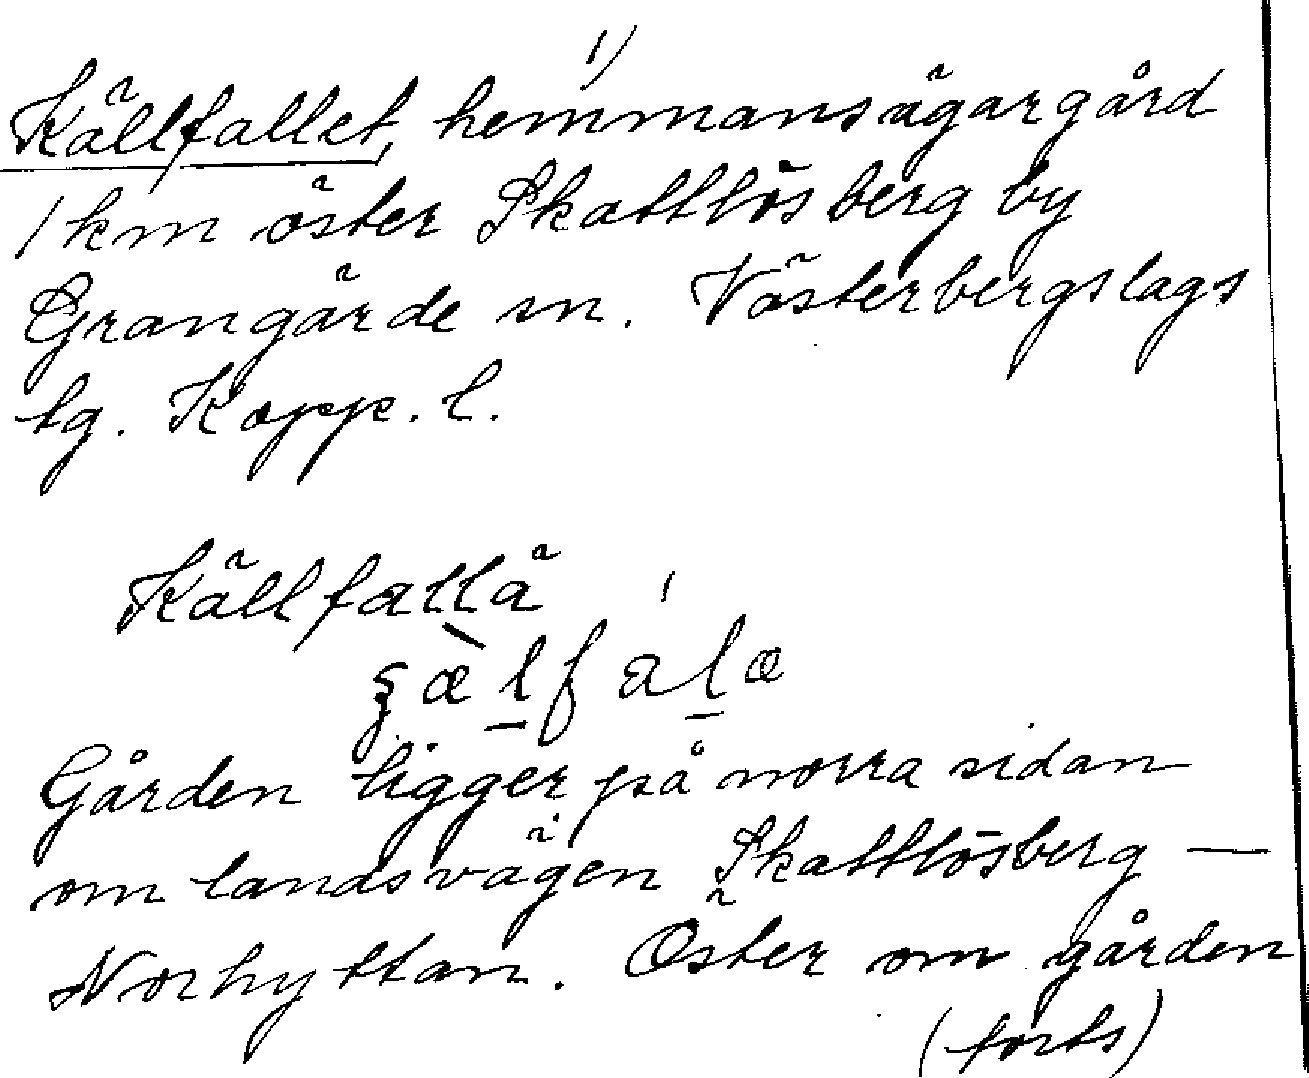 1)
Källfallet, hemmansägargård
1 km öster Skattlösberg by
Grangärde sn. Västerbergslags
tg. Kopp. l.
Källfallä
ʂæ̀lfalæ
Gården ligger på norra sidan
om landsvägen Skattlösberg —
Norhyttan. Öster om gården
(forts)